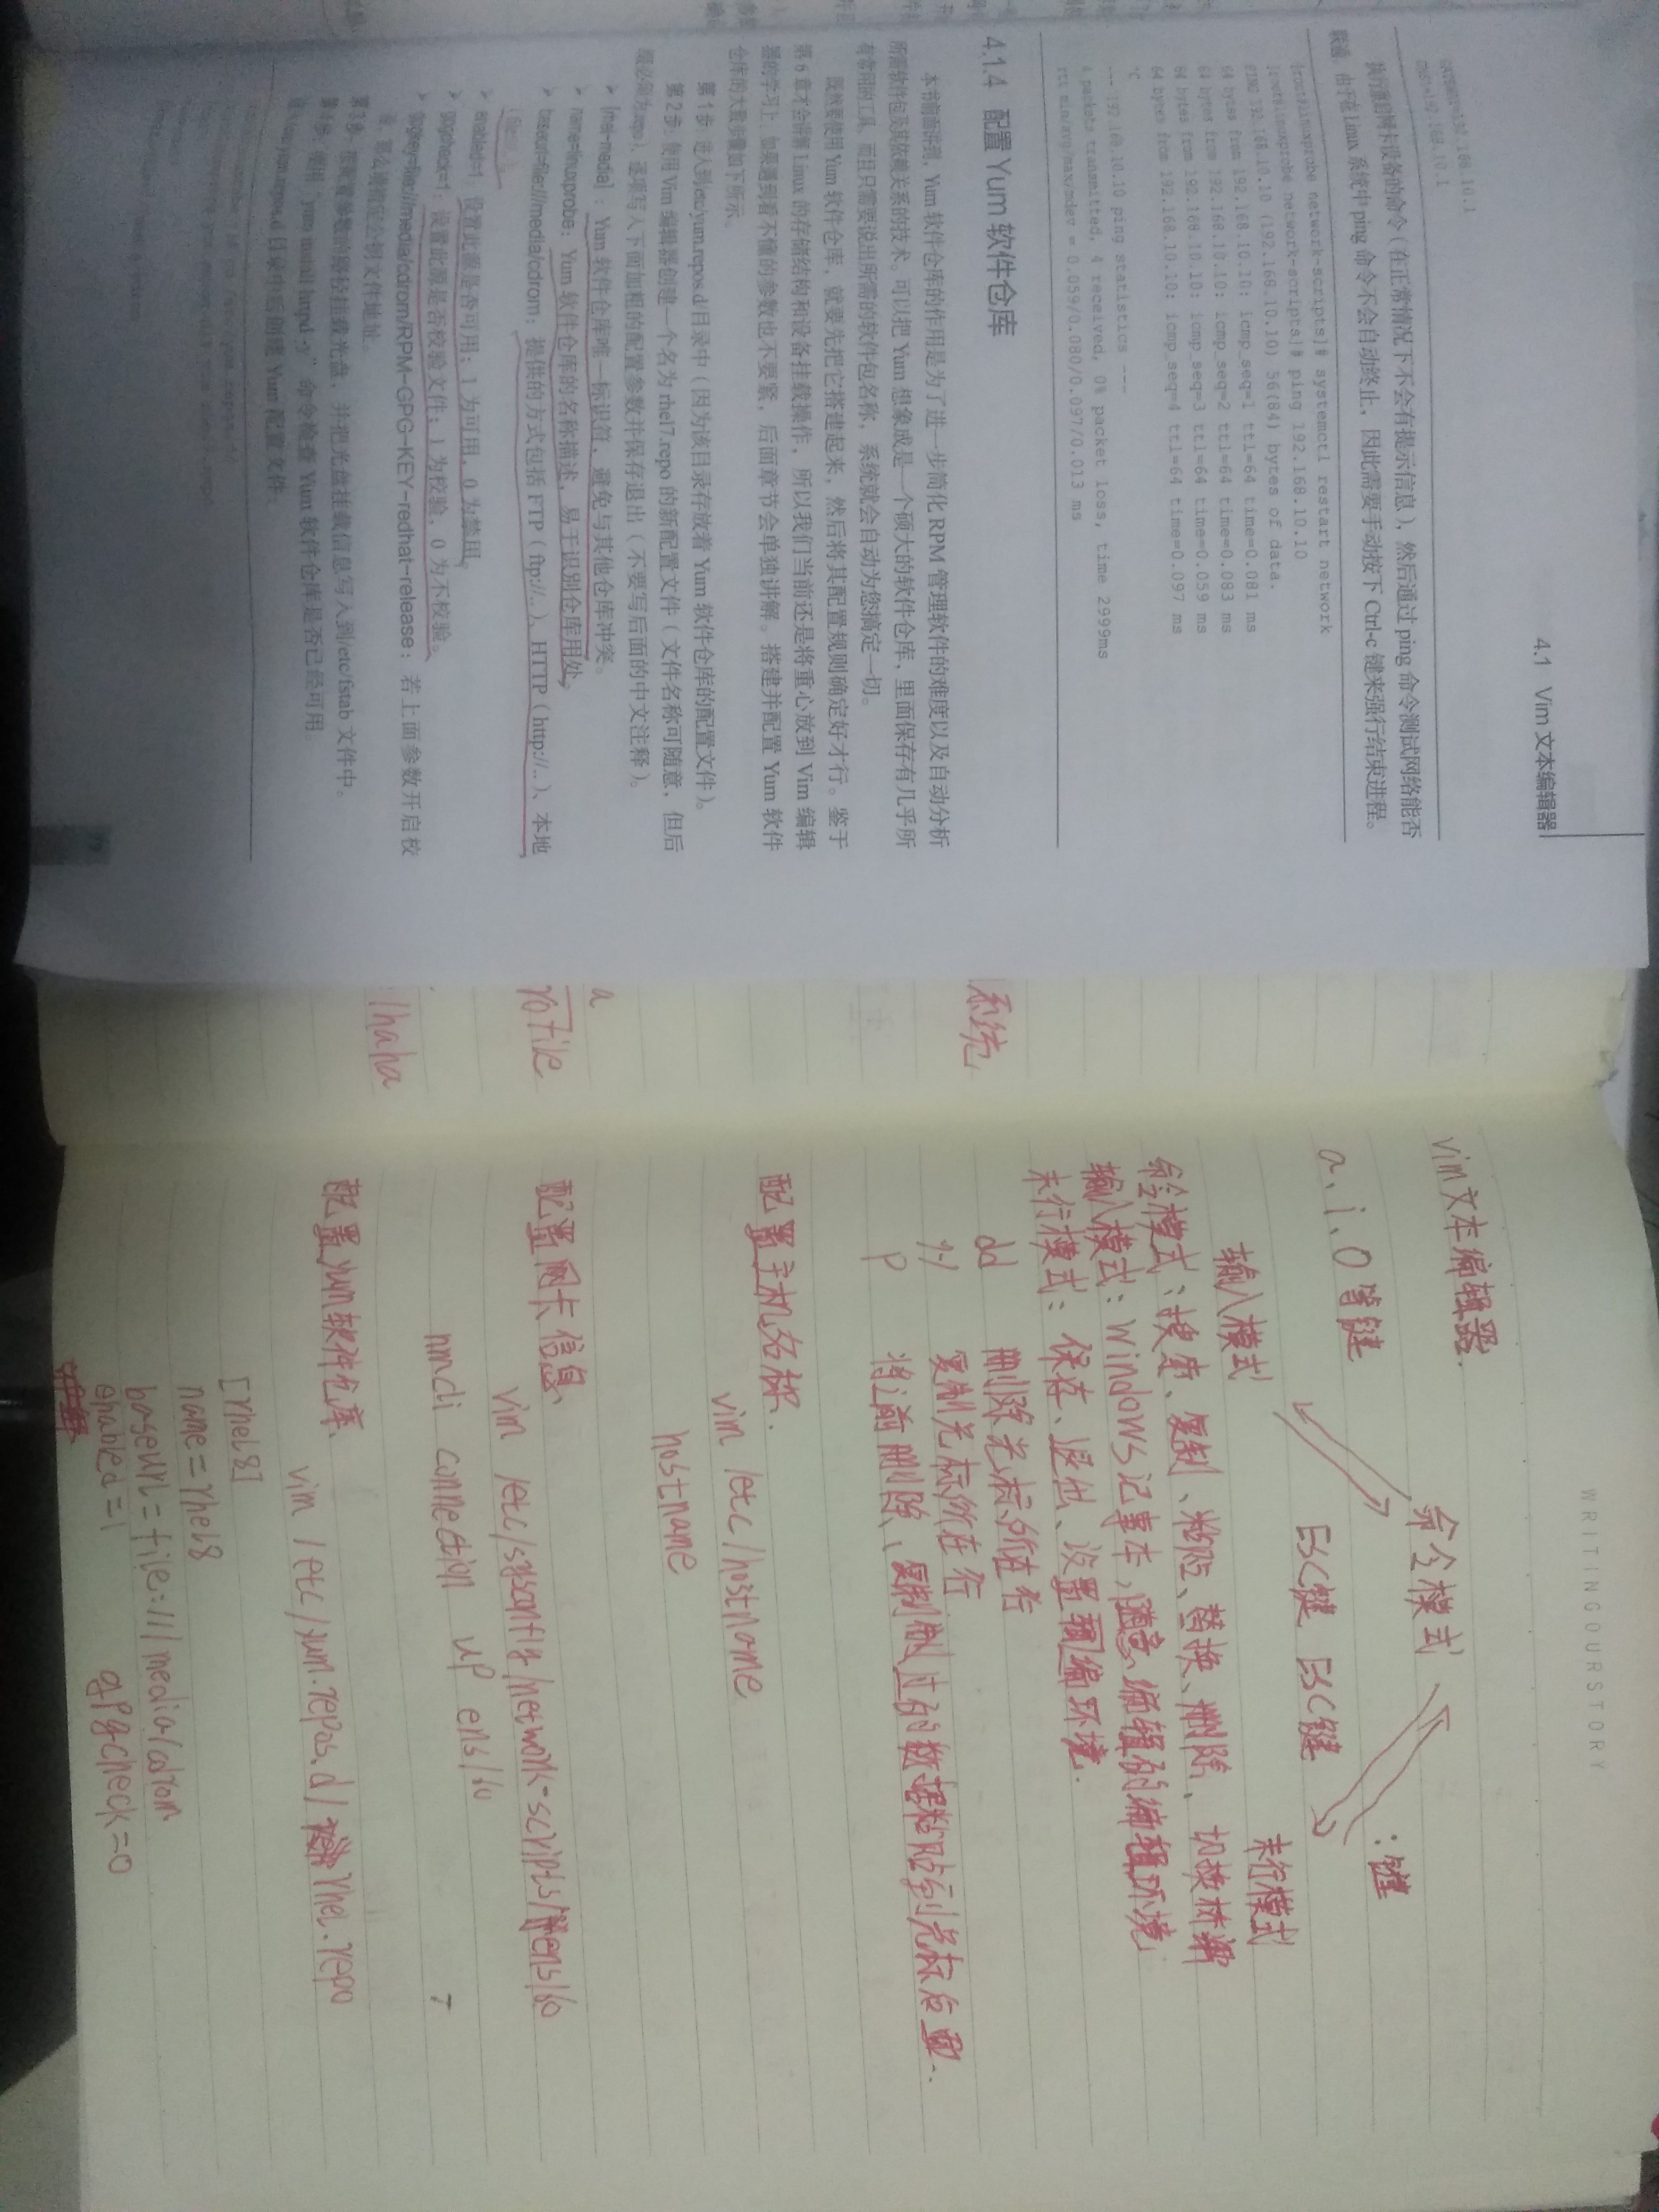 4.1 Vim 文本编辑器
GATEWAY=192.168.10.1
DNS1=192.168.10.1
执行重启网卡设备的命令(在正常情况下不会有提示信息),然后通过 ping 命令测试网络能否
联通。由于在 Linux 系统中 ping 命令不会自动终止,因此需要手动按下 Ctrl-c 键来强行结束进程。
[root@linuxprobe network-scripts]# systemctl restart network
[root@linuxprobe network-scripts]# ping 192.168.10.10
PING 192.168.10.10 (192.168.10.10) 56(84) bytes of data.
64 bytes from 192.168.10.10: icmp_seq=1 ttl=64 time=0.081 ms
64 bytes from 192.168.10.10: icmp_seq=2 ttl=64 time=0.083 ms
64 bytes from 192.168.10.10: icmp_seq=3 ttl=64 time=0.059 ms
64 bytes from 192.168.10.10: icmp_seq=4 ttl=64 time=0.097 ms
^C
--- 192.168.10.10 ping statistics ---
4 packets transmitted, 4 received, 0% packet loss, time 2999ms
rtt min/avg/max/mdev = 0.059/0.080/0.097/0.013 ms
4.1.4 配置 Yum 软件仓库
本书前面讲到,Yum 软件仓库的作用是为了进一步简化 RPM 管理软件的难度以及自动分析
所需软件包及其依赖关系的技术。可以把 Yum 想象成是一个硕大的软件仓库,里面保存有几乎所
有常用的工具,而且只需要说出所需的软件包名称,系统就会自动为您搞定一切。
既然要使用 Yum 软件仓库,就要先把它搭建起来,然后将其配置规则确定好才行。鉴于
第 6 章才会讲解 Linux 的存储结构和设备挂载操作,所以我们当前还是将重心放到 Vim 编辑
器的学习上。如果遇到看不懂的参数也不要紧,后面章节会单独讲解。搭建并配置 Yum 软件
仓库的大致步骤如下所示。
第 1 步:进入到/etc/yum.repos.d/目录中(因为该目录存放着 Yum 软件仓库的配置文件)。
第 2 步:使用 Vim 编辑器创建一个名为 rhel7.repo 的新配置文件(文件名称可随意,但后
缀必须为.repo),逐项写入下面加粗的配置参数并保存退出(不要写后面的中文注释)。
➢ [rhel-media] :Yum 软件仓库唯一标识符,避免与其他仓库冲突。
➢ name=linuxprobe:Yum 软件仓库的名称描述,易于识别仓库用处。
➢ baseurl=file:///media/cdrom:提供的方式包括 FTP(ftp://..)、HTTP(http://..)、本地
(file:///..)。
➢ enabled=1:设置此源是否可用;1 为可用,0 为禁用。
➢ gpgcheck=1:设置此源是否校验文件;1 为校验,0 为不校验。
➢ gpgkey=file:///media/cdrom/RPM-GPG-KEY-redhat-release:若上面参数开启校
验,那么请指定公钥文件地址。
第 3 步:按配置参数的路径挂载光盘,并把光盘挂载信息写入到/etc/fstab 文件中。
第 4 步:使用“yum install httpd -y”命令检查 Yum 软件仓库是否已经可用。
进入/etc/yum.repos.d 目录中后创建 Yum 配置文件:
系统
a
/haha
WRITINGOURSTORY
vim文本编辑器.
命令模式
a、i、O等键
ESC键 ESC键
:键
输入模式
末行模式
命令模式:搜索、复制、粘贴、替换、删除、切换
输入模式:windows记事本,随意编辑的编辑环境
末行模式:保存、退出、设置编环境.
dd 删除光标所在行
yy 复制光标所在行
p 将之前删除、复制过的数据粘贴到光标后面.
配置主机名称.
vim /etc/hostname
hostname
配置网卡信息
vim /etc/sysconfig/network-scripts/ens160
nmcli connection up ens160
配置yum软件仓库
vim /etc/yum.repos.d/rhel.repo
[rhel8]
name=rhel8
baseurl=file:///media/cdrom
enabled=1
gpgcheck=0
7